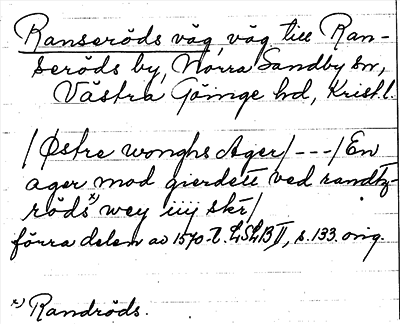 Ranseröds väg, väg till Ran-
seröds by, Norra Sandby sn,
Västra Göinge hd, Krist.l.
/Østre wonghs Ager/---/En
ager mod gierdett ved randtz-
röds x) wey iiij skr/
förra delen av 1570-t. LSLB II, s. 133. orig.
x) Randröds.